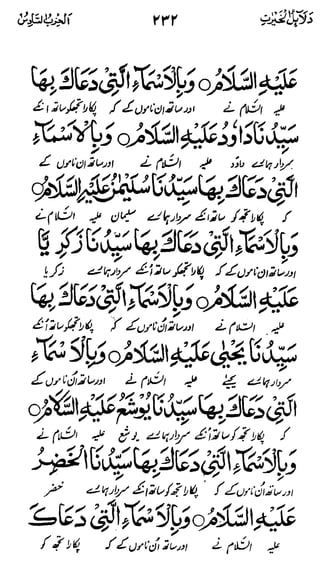 دلائل الخیرات ۲۳۲ الحزب السادس
عَلَيْهِ السَّلَامُ ○ وَبِالْاَسْمَآءِ الَّتِيْ دَعَاكَ بِهَا
علیہ السّلام نے اور ساتھ ان ناموں کے کہ پکارا تجھکو ساتھ انکے
سَيِّدُنَا دَاوٗدُ عَلَيْهِ السَّلَامُ ○ وَبِالْاَسْمَآءِ
سردار ہمارے داؤد علیہ السّلام نے اور ساتھ ان ناموں کے
الَّتِيْ دَعَاكَ بِهَا سَيِّدُنَا سُلَيْمٰنُ عَلَيْهِ السَّلَامُ ○
کہ پکارا تجھ کو ساتھ انکے سردار ہمارے سلیمان علیہ السّلام نے
وَبِالْاَسْمَآءِ الَّتِيْ دَعَاكَ بِهَا سَيِّدُنَا زَكَرِيَّا
اور ساتھ ان ناموں کے کہ پکارا تجھکو ساتھ اُنکے سردار ہمارے زکریا
عَلَيْهِ السَّلَامُ ○ وَبِالْاَسْمَآءِ الَّتِيْ دَعَاكَ بِهَا
علیہ السّلام نے اور ساتھ ان ناموں کے کہ پکارا تجھکو ساتھ اُنکے
سَيِّدُنَا يَحْيٰى عَلَيْهِ السَّلَامُ ○ وَبِالْاَسْمَآءِ
سردار ہمارے یحییٰ علیہ السّلام نے اور ساتھ ان ناموں کے
الَّتِيْ دَعَاكَ بِهَا سَيِّدُنَا يُوْشَعُ عَلَيْهِ السَّلَامُ ○
کہ پکارا تجھ کو ساتھ اُنکے سردار ہمارے یوشع علیہ السّلام نے
وَبِالْاَسْمَآءِ الَّتِيْ دَعَاكَ بِهَا سَيِّدُنَا الْخَضِرُ
اور ساتھ اُن ناموں کے کہ پکارا تجھ کو ساتھ انکے سردار ہمارے خضر
عَلَيْهِ السَّلَامُ ○ وَبِالْاَسْمَآءِ الَّتِيْ دَعَاكَ
علیہ السّلام نے اور ساتھ اُن ناموں کے کہ پکارا تجھ کو